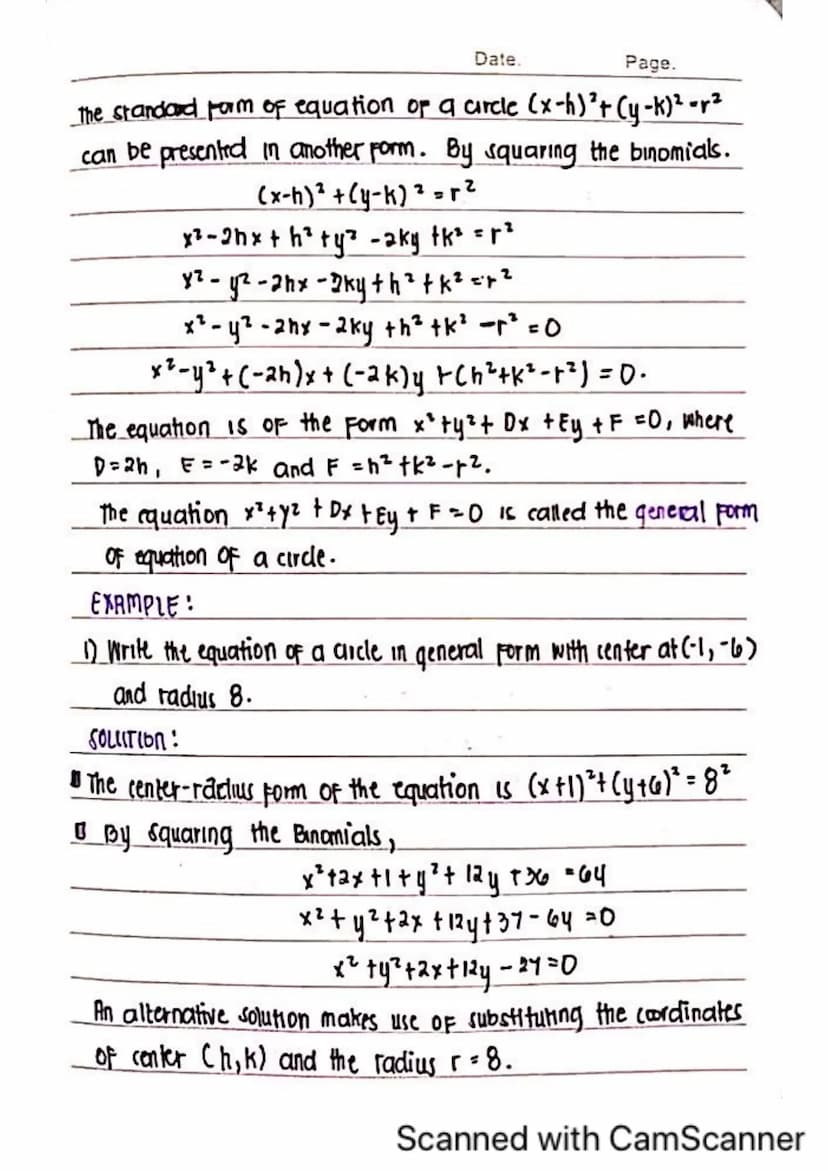 Date. Page.
The standard form of equation of a circle (x-h)²+(y-k)²=r²
can be presented in another form. By squaring the binomials.
(x-h)²+(y-k)²=r²
x²-2hx+h²+y²-2ky+k²=r²
x²-y²-2hx-2ky+h²+k²=r²
x²-y²-2hx-2ky+h²+k²-r²=0
x²-y²+(-2h)x+(-2k)y+(h²+k²-r²)=0.
The equation is of the form x²+y²+Dx+Ey+F=0, where
D=2h, E=-2k and F=h²+k²-r².
The equation x²+y²+Dx+Ey+F=0 is called the general form
of equation of a circle.
EXAMPLE:
1) Write the equation of a circle in general form with center at (-1,-6)
and radius 8.
SOLUTION:
The center-radius form of the equation is (x+1)²+(y+6)²=8²
By squaring the Binomials,
x²+2x+1+y²+12y+36=64
x²+y²+2x+12y+37-64=0
x²+y²+2x+12y-27=0
An alternative solution makes use of substituting the coordinates
of center (h,k) and the radius r=8.
Scanned with CamScanner